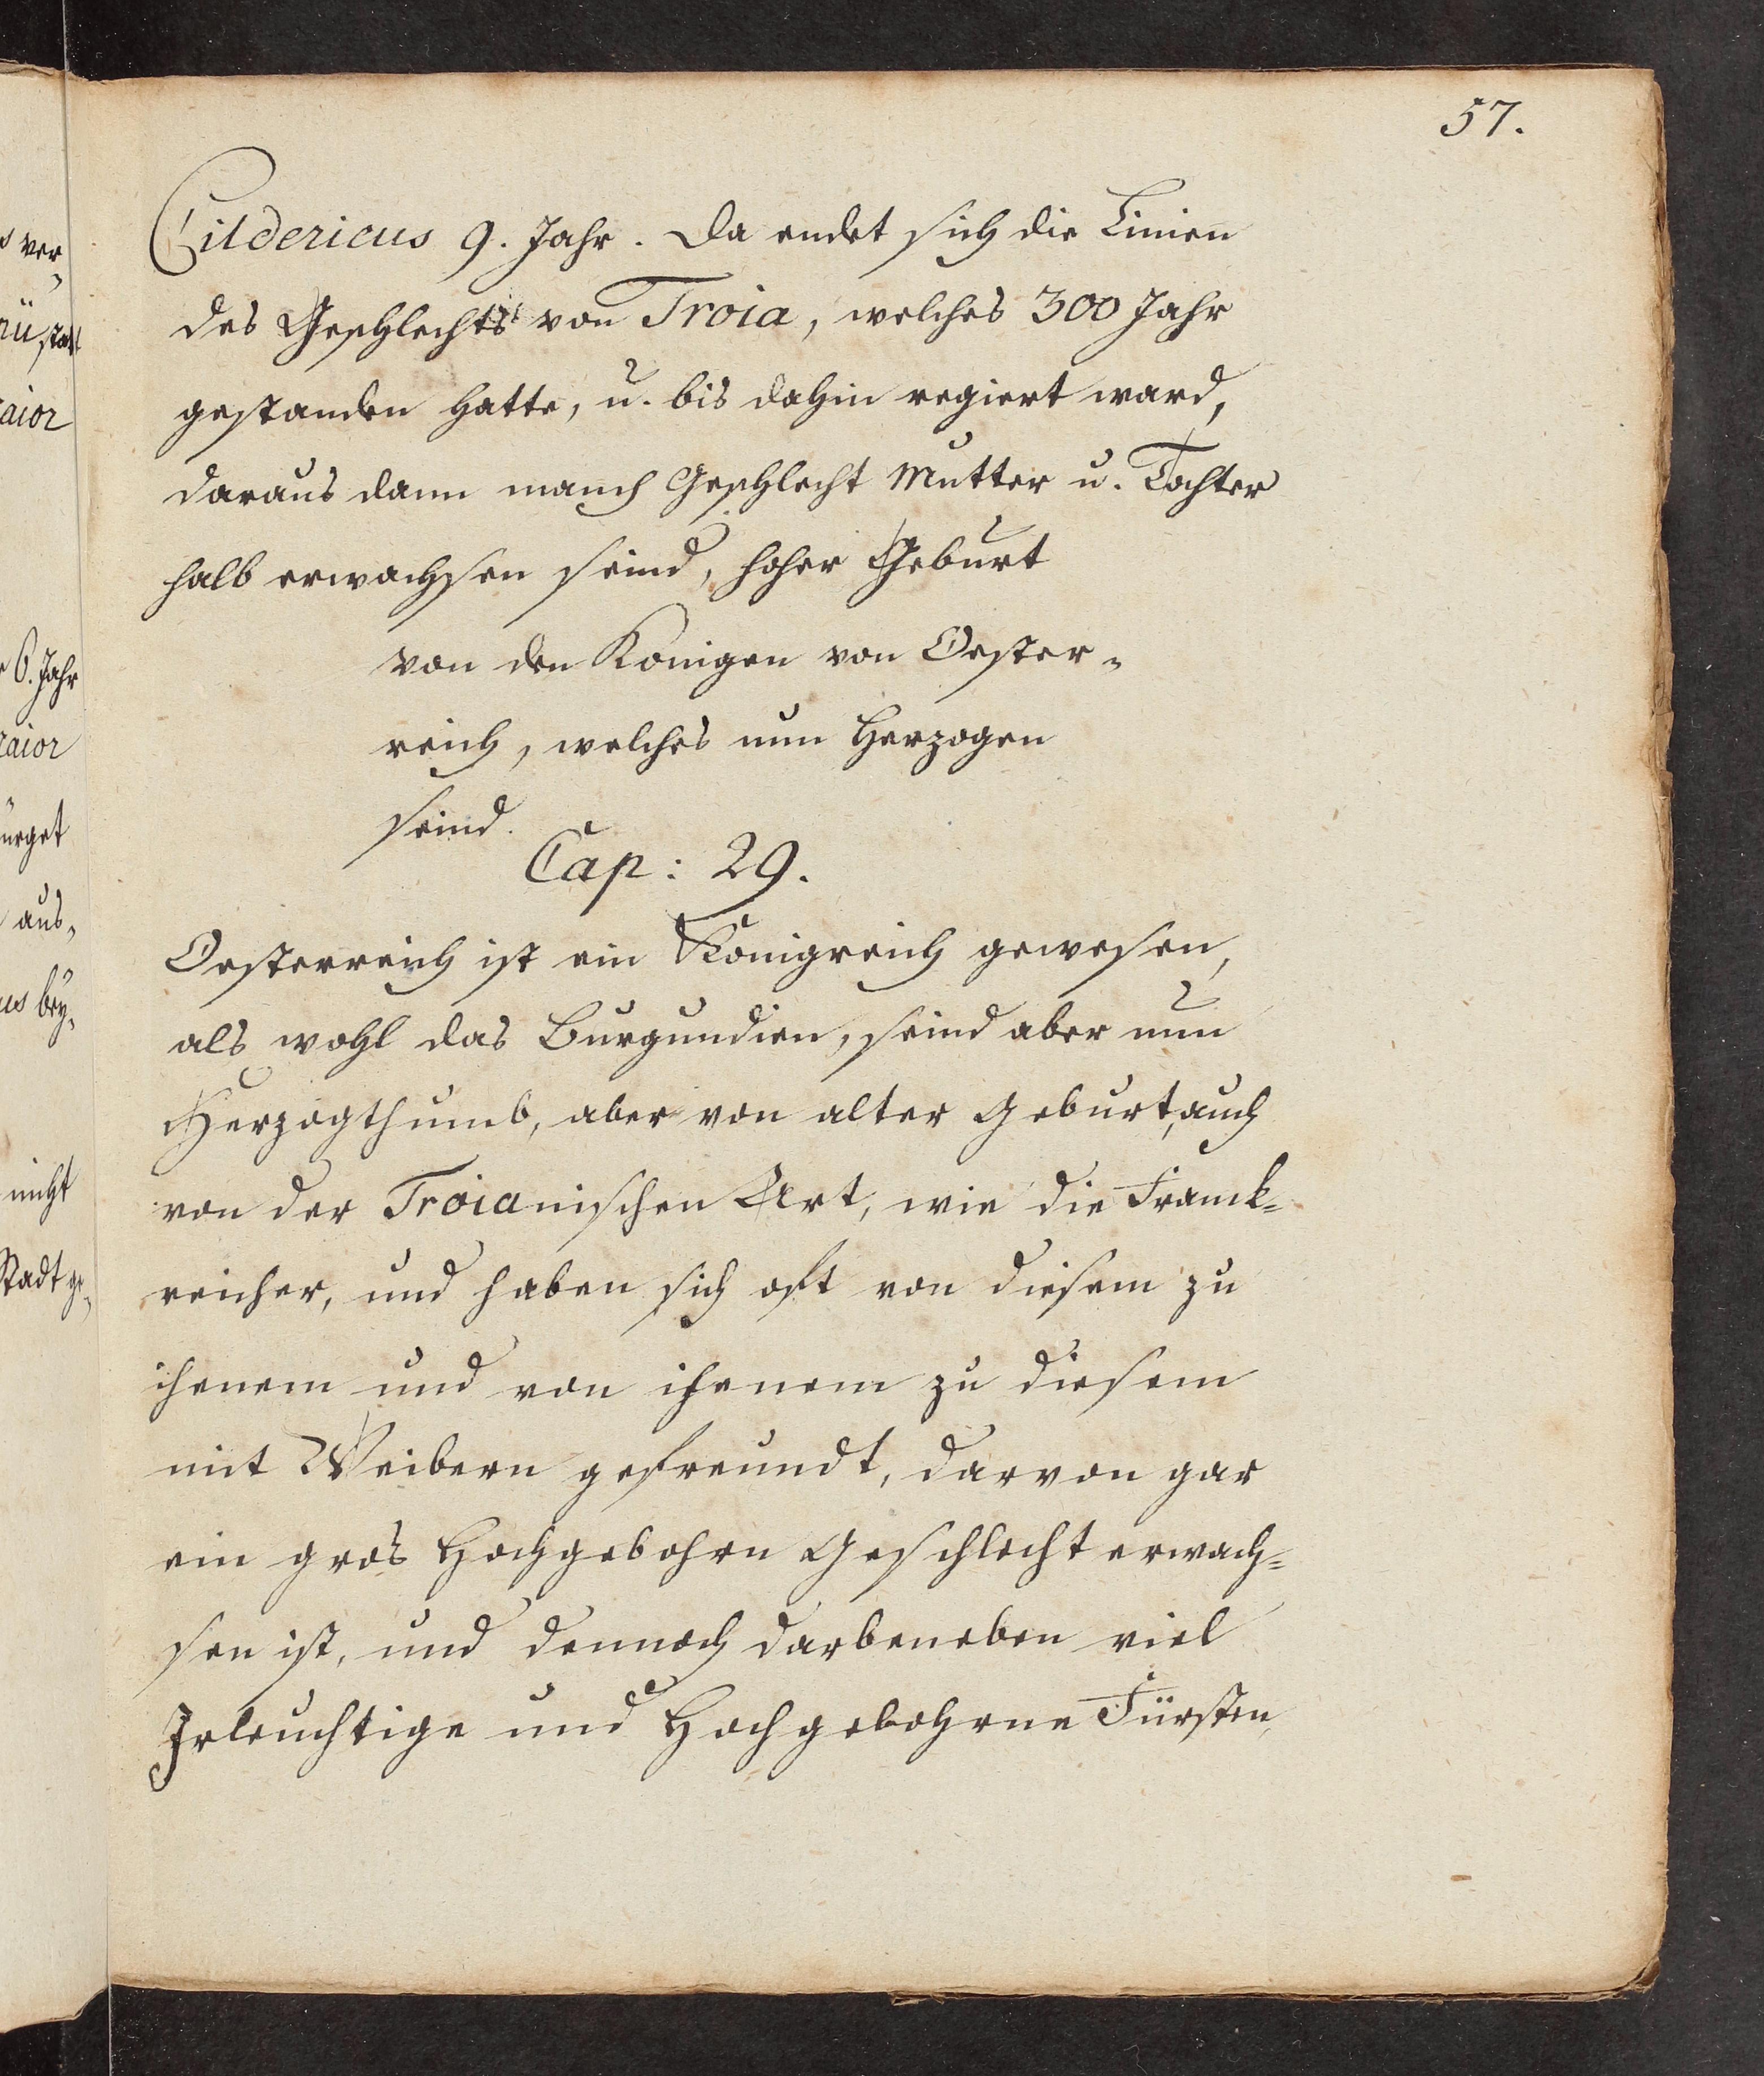 57.
Cildericus 9. Jahr. Da endet sich die Linien
des Geschlechts von Troia, welches 300 Jahr
gestanden hatte, u. bis dahin regiert ward,
daraus dann manch Geschlecht Mutter u. Tochter
halb erwachsen seind, hoher Geburt
von den Königen von Oester-
reich, welches nun Herzogen
seind.
Cap: 29.
Oesterreich ist ein Königreich gewesen,
als wohl das Burgundien, seind aber nun
Herzogthumb, aber von alter Geburt, auch
von der Troianischen Art, wie die Franck-
reicher, und haben sich oft von diesem zu
ihenem und von ihenem zu diesem
mit Weibern gefreundt, darvon gar
ein gros Hochgebohrn Geschlecht erwach-
sen ist, und dennoch darbeneben viel
Irleuchtige und Hochgebohrne Fürsten,
ver-
aior
6. Jahr
aior
ürget
aus-
us bey-
nicht
Stadt ge-